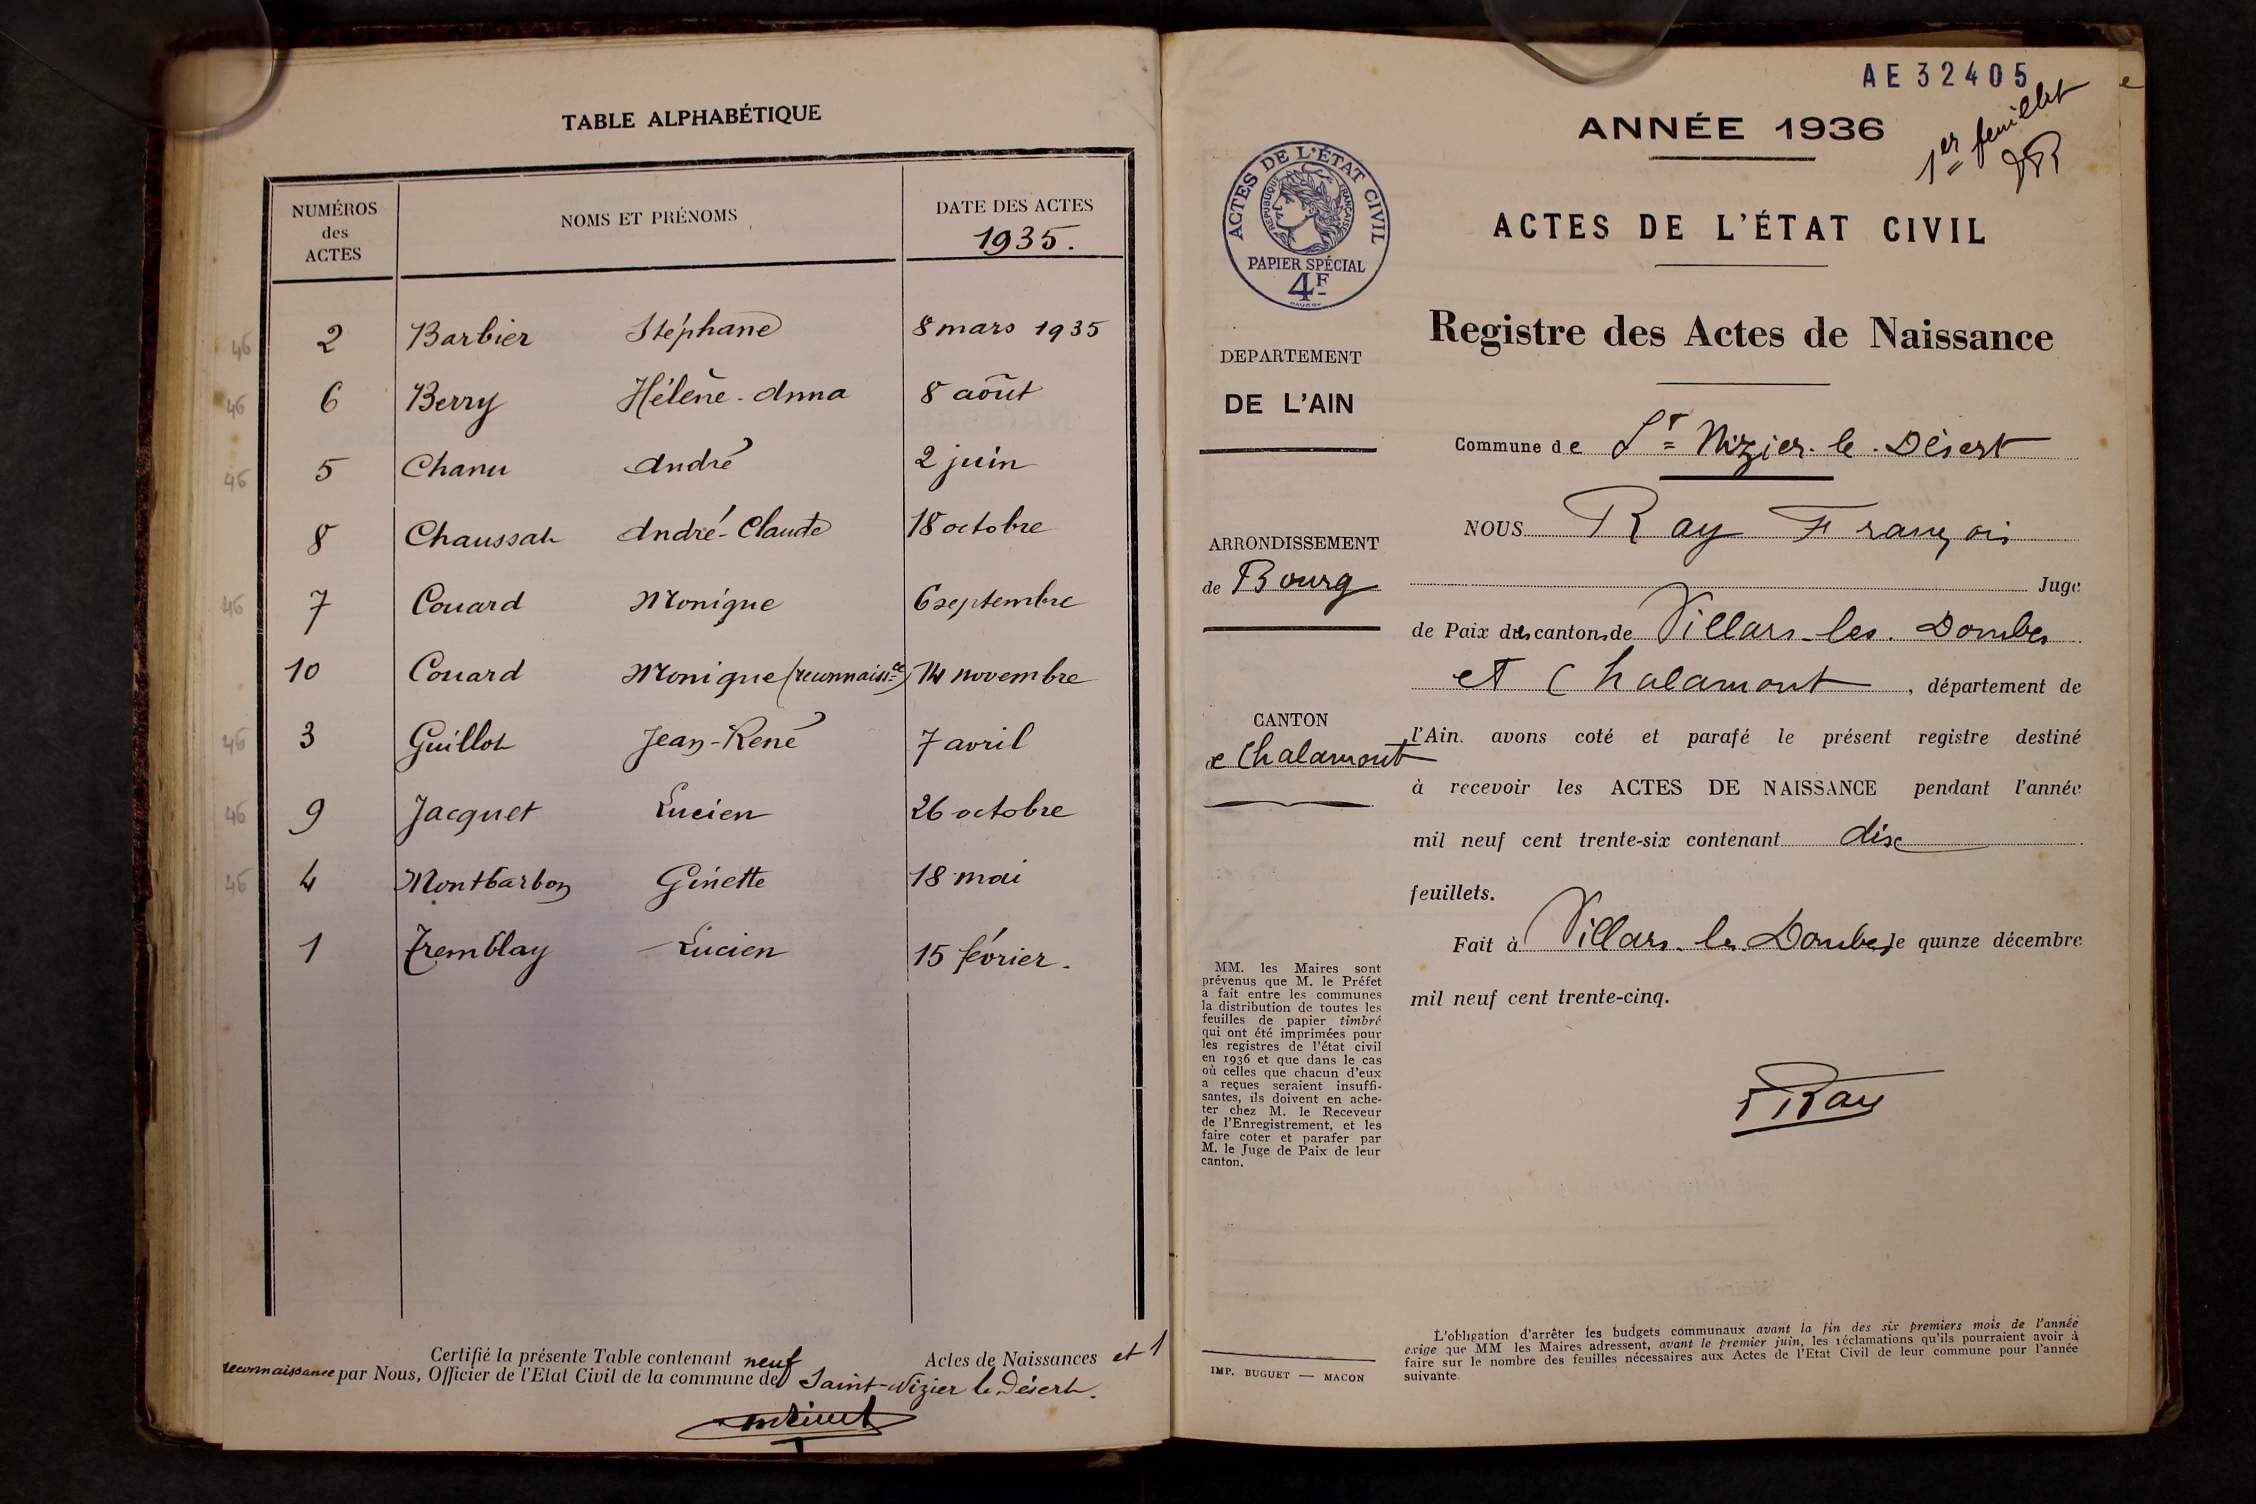 TABLE ALPHABÉTIQUE
NUMÉROS
des
ACTES
NOMS ET PRÉNOMS
DATE DES ACTES
1935.
46 2 Barbier Stéphane 8 mars 1935
46 6 Berry Hélène-Anna 8 août
46 5 Chanu André 2 juin
8 Chaussat André-Claude 18 octobre
46 7 Couard Monique 6 septembre
10 Couard Monique (reconnaissce) 14 novembre
46 3 Guillot Jean-René 7 avril
46 9 Jacquet Lucien 26 octobre
46 4 Montbarbon Ginette 18 mai
1 Tremblay Lucien 15 février.
Certifié la présente Table contenant neuf Actes de Naissances et 1
reconnaissance par Nous, Officier de l'Etat Civil de la commune de Saint-Nizier le Désert.
AE32405
1er feuillet
ANNÉE 1936
ACTES DE L'ÉTAT CIVIL
RÉPUBLIQUE FRANÇAISE
PAPIER SPÉCIAL
4F
ACTES DE L'ÉTAT CIVIL
Registre des Actes de Naissance
DEPARTEMENT
DE L'AIN
ARRONDISSEMENT
de Bourg
CANTON
de Chalamont
MM. les Maires sont
prévenus que M. le Préfet
a fait entre les communes
la distribution de toutes les
feuilles de papier timbré
qui ont été imprimées pour
les registres de l'état civil
en 1936 et que dans le cas
où celles que chacun d'eux
a reçues seraient insuffi-
santes, ils doivent en ache-
ter chez M. le Receveur
de l'Enregistrement, et les
faire coter et parafer par
M. le Juge de Paix de leur
canton.
IMP. BUGUET — MACON
Commune de St Nizier-le-Désert
NOUS Ray François
Juge
de Paix des cantons de Villars-les-Dombes
et Chalamont, département de
l'Ain, avons coté et parafé le présent registre destiné
à recevoir les ACTES DE NAISSANCE pendant l'année
mil neuf cent trente-six contenant dix
feuillets.
Fait à Villars-les-Dombes le quinze décembre
mil neuf cent trente-cinq.
F Ray
L'obligation d'arrêter les budgets communaux avant la fin des six premiers mois de l'année
exige que MM les Maires adressent, avant le premier juin, les réclamations qu'ils pourraient avoir à
faire sur le nombre des feuilles nécessaires aux Actes de l'Etat Civil de leur commune pour l'année
suivante